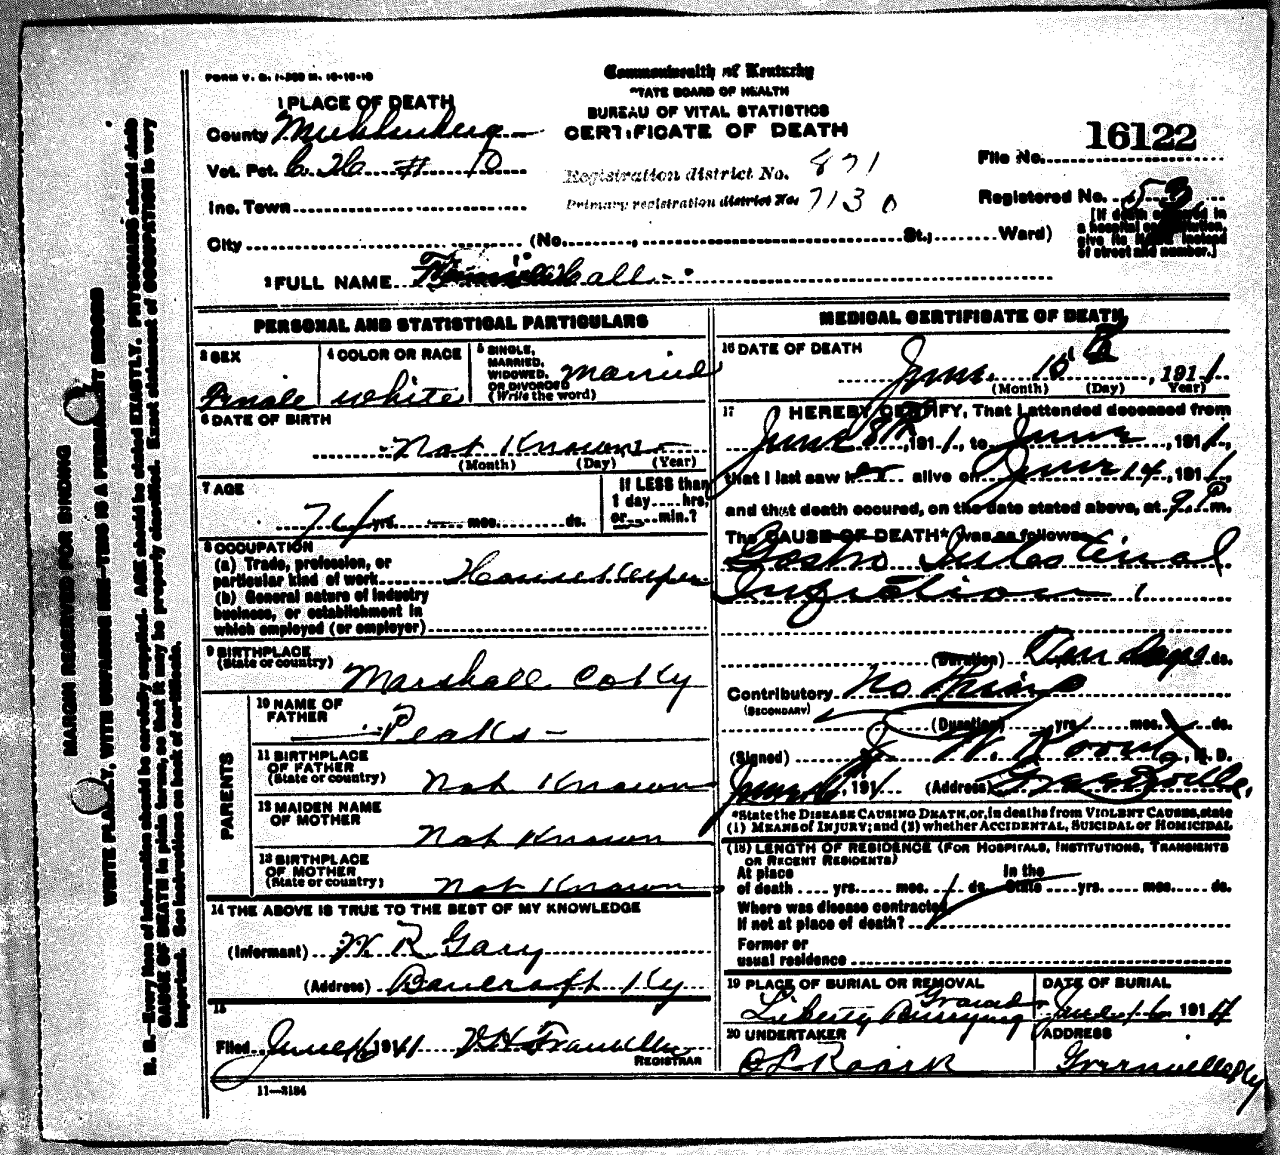 FORM V. S. 1-300 M. 10-10-10
Commonwealth of Kentucky
STATE BOARD OF HEALTH
BUREAU OF VITAL STATISTICS
CERTIFICATE OF DEATH
1 PLACE OF DEATH
County Muhlenberg
Vot. Pct. C. Ho # 10
Inc. Town
City (No. , St.; Ward)
Registration district No. 871
Primary registration district No. 7130
File No. 16122
Registered No. 53
[If death occurred in
a hospital or institution,
give its instead
of street and number.]
2 FULL NAME Hall
PERSONAL AND STATISTICAL PARTICULARS
3 SEX
Female
4 COLOR OR RACE
white
5 SINGLE,
MARRIED,
WIDOWED,
OR DIVORCED
(Write the word)
Married
6 DATE OF BIRTH
Not Known
(Month) (Day) (Year)
7 AGE
71 yrs. mos. ds.
If LESS than
1 day hrs.
or min.?
8 OCCUPATION
(a) Trade, profession, or
particular kind of work House Keeper
(b) General nature of industry
business, or establishment in
which employed (or employer)
9 BIRTHPLACE
(State or country)
Marshall Co Ky
PARENTS
10 NAME OF
FATHER
Peaks
11 BIRTHPLACE
OF FATHER
(State or country)
Not Known
12 MAIDEN NAME
OF MOTHER
Not Known
13 BIRTHPLACE
OF MOTHER
(State or country)
Not Known
14 THE ABOVE IS TRUE TO THE BEST OF MY KNOWLEDGE
(Informant) W. R. Gary
(Address) Bancroft Ky
15
Filed June 16 1911
REGISTRAR
11-3184
MEDICAL CERTIFICATE OF DEATH
16 DATE OF DEATH
June 15 , 1911
(Month) (Day) Year)
17 I HEREBY CERTIFY, That I attended deceased from
June 8th 1911, to June , 1911,
that I last saw her alive on June 14, 1911,
and that death occured, on the date stated above, at 9 P m.
The CAUSE OF DEATH* was as follows
Gastro Intestinal
Infection
(Duration) Ten Days ds.
Contributory No Thing
(SECONDARY)
(Duration) yrs. mos. ds.
(Signed) J. W. , M. D.
June 16, 1911 (Address)
*State the DISEASE CAUSING DEATH, or, in deaths from VIOLENT CAUSES, state
(1) MEANS of INJURY; and (2) whether ACCIDENTAL, SUICIDAL or HOMICIDAL
(18) LENGTH OF RESIDENCE (FOR HOSPITALS, INSTITUTIONS, TRANSIENTS
OR RECENT RESIDENTS)
At place In the
of death yrs. mos. ds. State yrs. mos. ds.
Where was disease contracted
If not at place of death?
Former or
usual residence
19 PLACE OF BURIAL OR REMOVAL
Liberty Burrying Ground
DATE OF BURIAL
June 16 1911
20 UNDERTAKER
O L Roark
ADDRESS
Greenville Ky
MARGIN RESERVED FOR BINDING
WRITE PLAINLY, WITH UNFADING INK—THIS IS A PERMANENT RECORD
N. B.—Every item of information should be carefully supplied. AGE should be stated EXACTLY. PHYSICIANS should state
CAUSE OF DEATH in plain terms, so that it may be properly classified. Exact statement of OCCUPATION is very
important. See instructions on back of certificate.